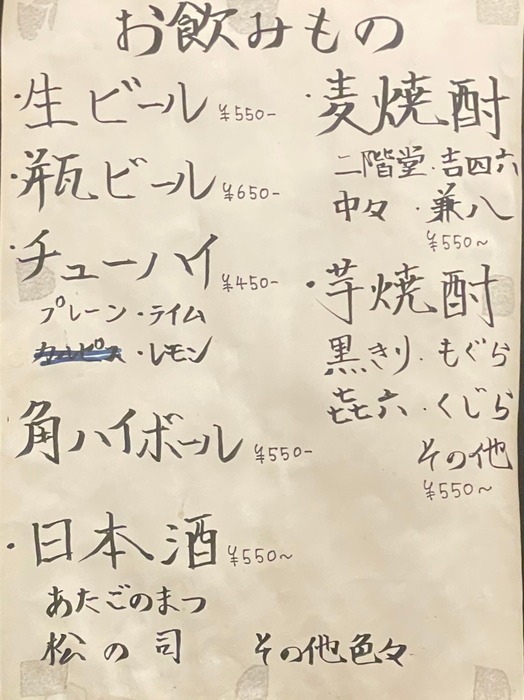 お飲みもの
・生ビール ¥550-
・瓶ビール ¥650-
・チューハイ ¥450-
プレーン・ライム
カルピス・レモン
角ハイボール ¥550-
・日本酒 ¥550~
あたごのまつ
松の司 その他色々
・麦焼酎
二階堂・吉四六
中々・兼八
¥550~
・芋焼酎
黒きり・もぐら
㐂六・くじら
その他
¥550~